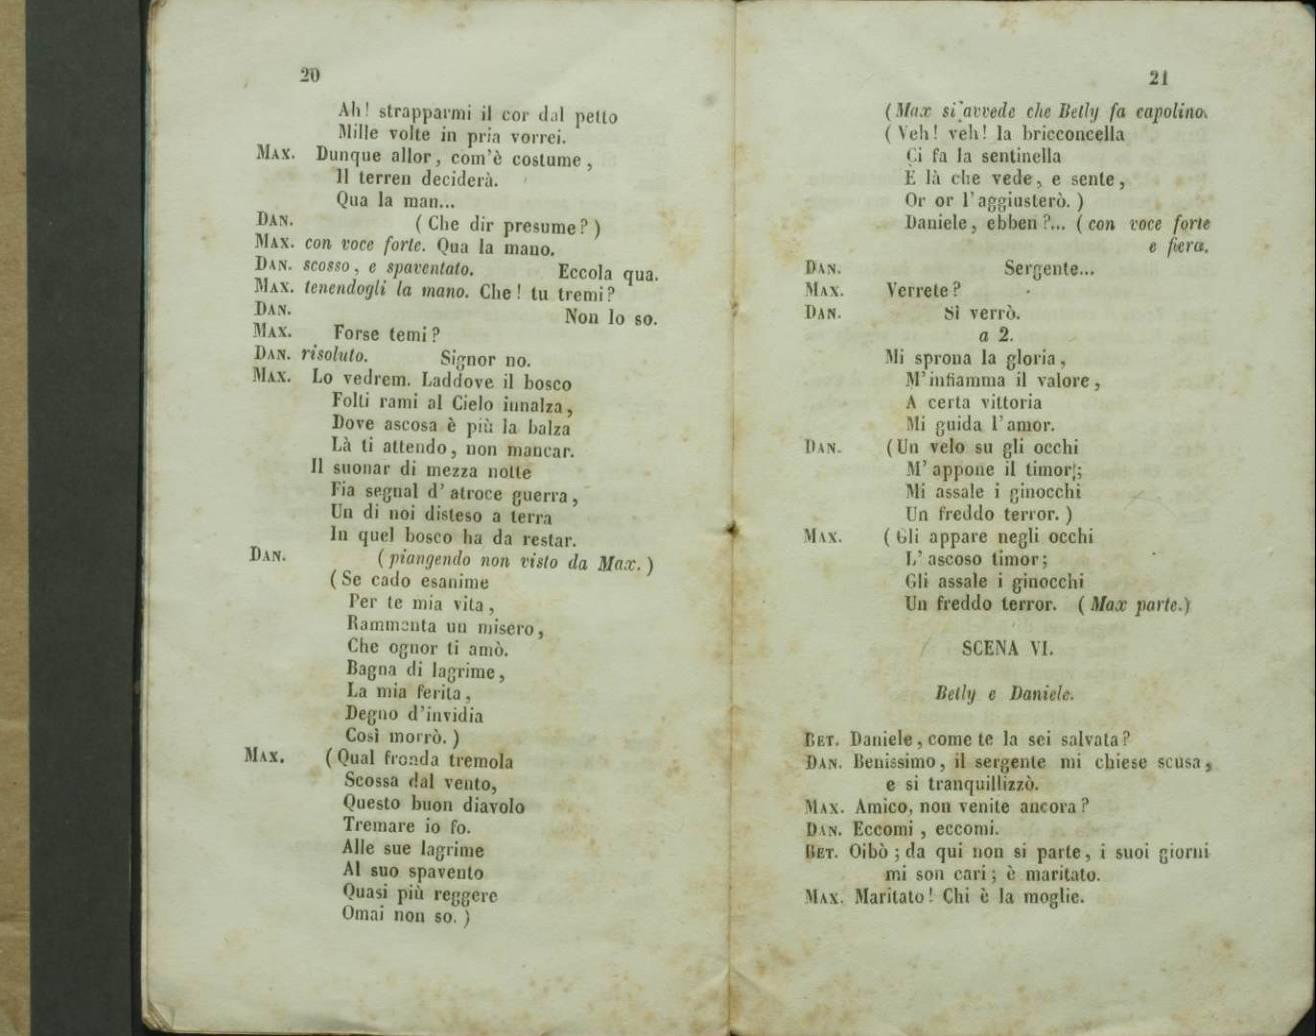 20
Ah! strapparmi il cor dal petto
Mille volte in pria vorrei.
MAX. Dunque allor, com'è costume,
Il terren deciderà.
Qua la man...
DAN. (Che dir presume?)
MAX. con voce forte. Qua la mano.
DAN. scosso, e spaventato. Eccola qua.
MAX. tenendogli la mano. Che! tu tremi?
DAN. Non lo so.
MAX. Forse temi?
DAN. risoluto. Signor no.
MAX. Lo vedrem. Laddove il bosco
Folti rami al Cielo innalza,
Dove ascosa è più la balza
Là ti attendo, non mancar.
Il suonar di mezza notte
Fia segnal d'atroce guerra,
Un di noi disteso a terra
In quel bosco ha da restar.
DAN. (piangendo non visto da Max.)
(Se cado esanime
Per te mia vita,
Rammenta un misero,
Che ognor ti amò.
Bagna di lagrime,
La mia ferita,
Degno d'invidia
Così morrò.)
MAX. (Qual fronda tremola
Scossa dal vento,
Questo buon diavolo
Tremare io fo.
Alle sue lagrime
Al suo spavento
Quasi più reggere
Omai non so.)
21
(Max si avvede che Betly fa capolino.
(Veh! veh! la bricconcella
Ci fa la sentinella
È là che vede, e sente,
Or or l'aggiusterò.)
Daniele, ebben?... (con voce forte
e fiera.
DAN. Sergente...
MAX. Verrete?
DAN. Si verrò.
a 2.
Mi sprona la gloria,
M'infiamma il valore,
A certa vittoria
Mi guida l'amor.
DAN. (Un velo su gli occhi
M'appone il timor;
Mi assale i ginocchi
Un freddo terror.)
MAX. (Gli appare negli occhi
L'ascoso timor;
Gli assale i ginocchi
Un freddo terror. (Max parte.)
SCENA VI.
Betly e Daniele.
BET. Daniele, come te la sei salvata?
DAN. Benissimo, il sergente mi chiese scusa,
e si tranquillizzò.
MAX. Amico, non venite ancora?
DAN. Eccomi, eccomi.
BET. Oibò; da qui non si parte, i suoi giorni
mi son cari; è maritato.
MAX. Maritato! Chi è la moglie.